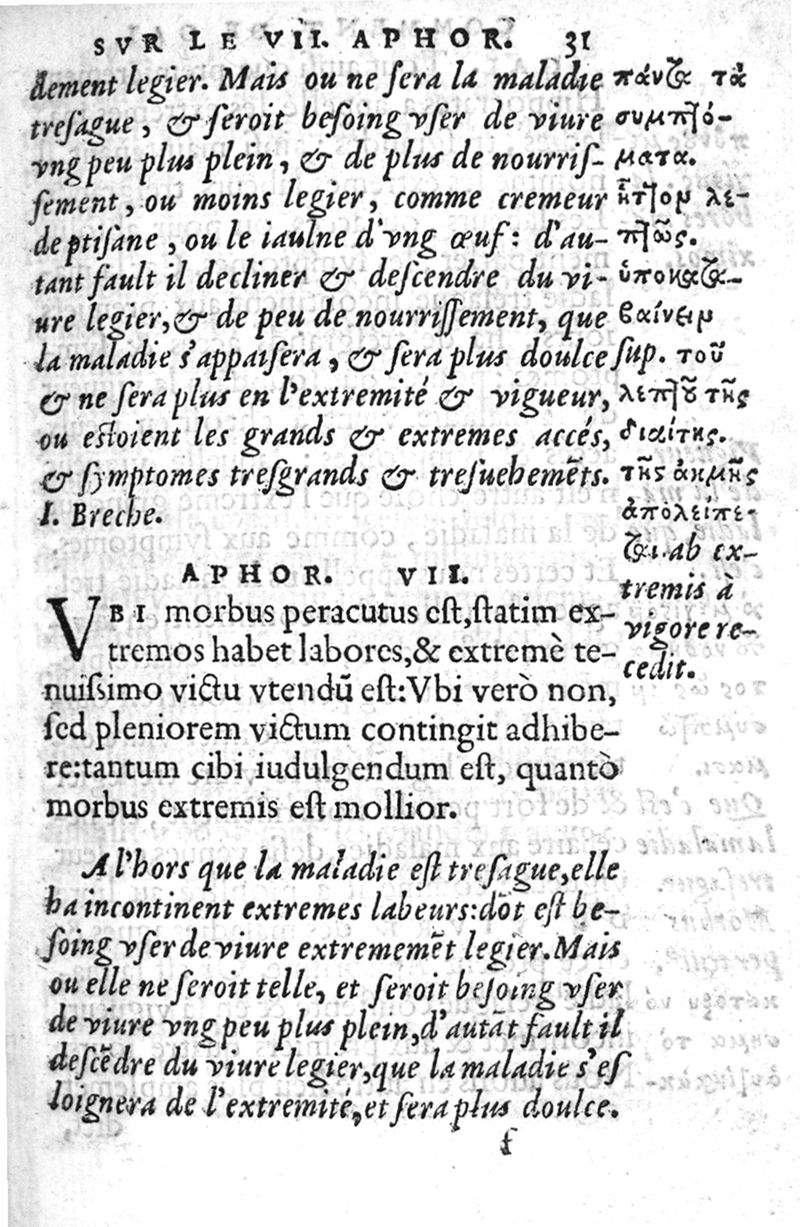 SVR LE VII. APHOR. 31
dement legier. Mais ou ne sera la maladie
tresague, & seroit besoing vser de viure
vng peu plus plein, & de plus de nourris-
sement, ou moins legier, comme cremeur
de ptisane, ou le iaulne d'vng œuf: d'au-
tant fault il decliner & descendre du vi-
ure legier, & de peu de nourrissement, que
la maladie s'appaisera, & sera plus doulce
& ne sera plus en l'extremité & vigueur,
ou estoient les grands & extremes accés,
& symptomes tresgrands & tresuehemẽts.
I. Breche.
πάντα τὰ
συμπτώ-
ματα.
ἧττον λε-
πτῶς.
ὑποκατα-
βαίνειν
sup. τοῦ
λεπτοῦ τῆς
διαίτης.
τῆς ἀκμῆς
ἀπολείπε-
ται. ab ex-
tremis à
vigore re-
cedit.
APHOR. VII.
VBI morbus peracutus est, statim ex-
tremos habet labores, & extremè te-
nuissimo victu vtendũ est: Vbi verò non,
sed pleniorem victum contingit adhibe-
re: tantum cibi iudulgendum est, quantò
morbus extremis est mollior.
Al'hors que la maladie est tresague, elle
ha incontinent extremes labeurs: dõt est be-
soing vser de viure extrememẽt legier. Mais
ou elle ne seroit telle, et seroit besoing vser
de viure vng peu plus plein, d'autãt fault il
descẽdre du viure legier, que la maladie s'es
loignera de l'extremité, et sera plus doulce.
f